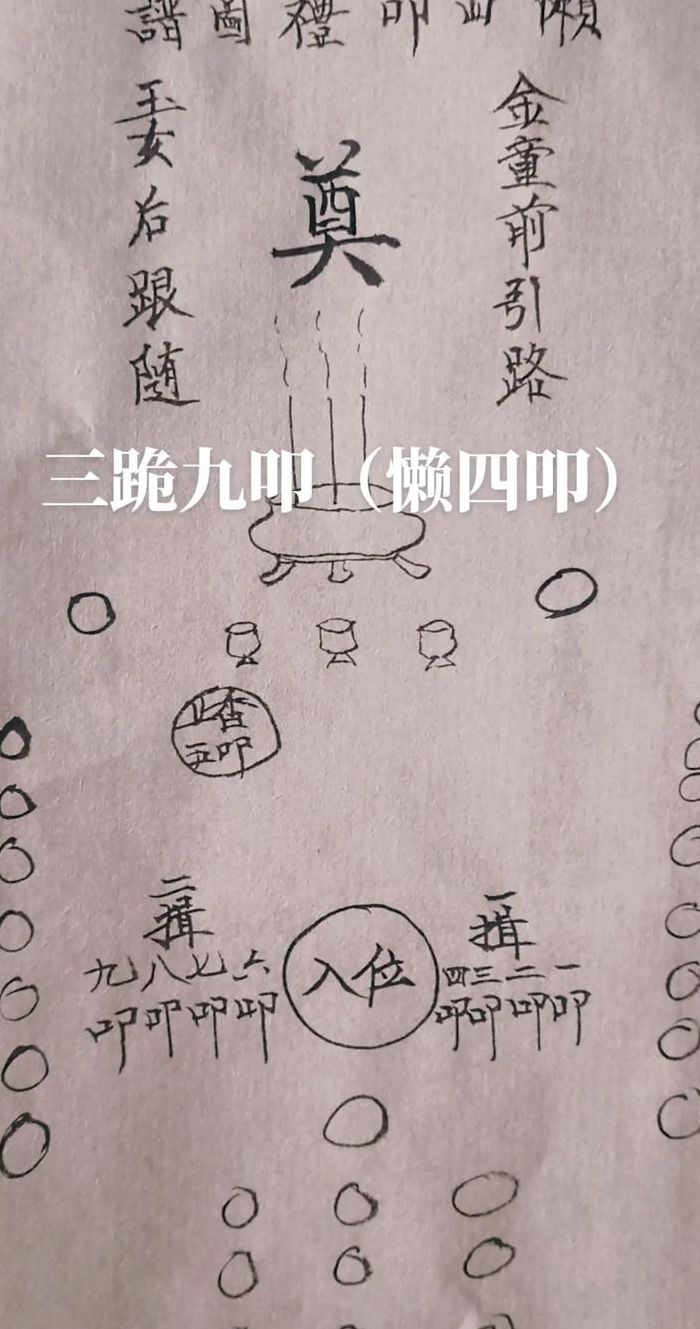 懶四叩禮圖譜
金童前引路
奠
玉女后跟随
三跪九叩（懒四叩）
香
五叩
一揖
一叩
二叩
三叩
四叩
入位
二揖
六叩
七叩
八叩
九叩